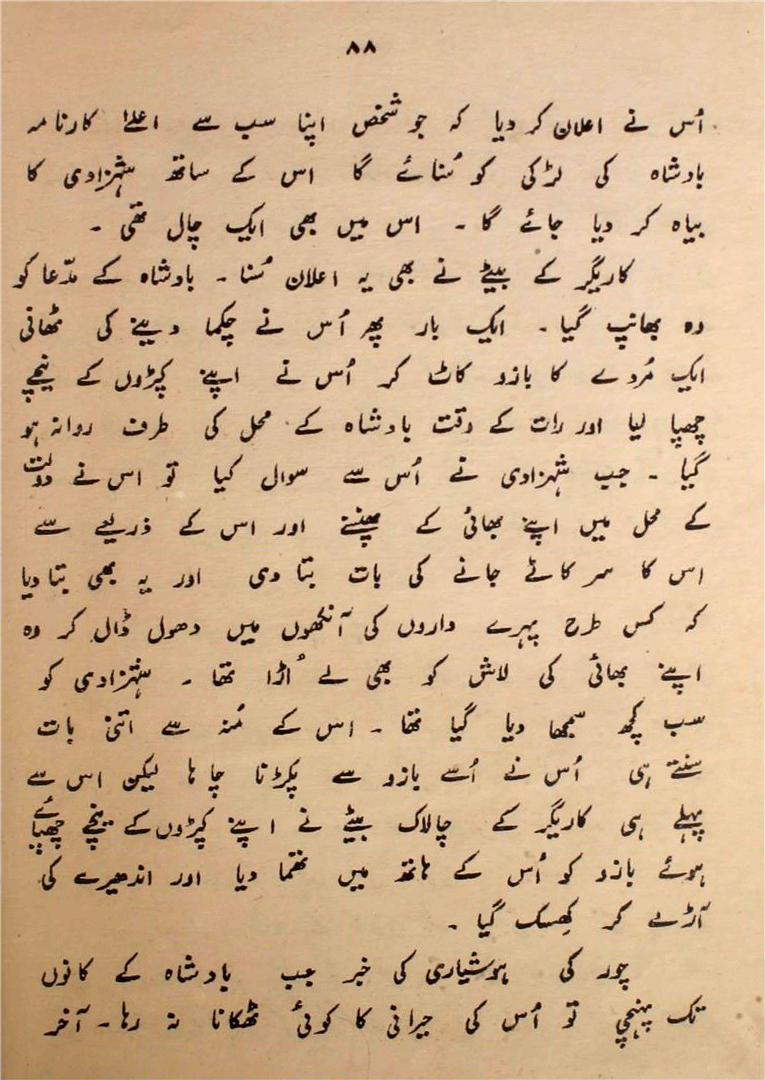 ۸۸
اُس نے اعلان کر دیا کہ جو شخص اپنا سب سے اعلےٰ کارنامہ
بادشاہ کی لڑکی کو سُنائے گا اس کے ساتھ شہزادی کا
بیاہ کر دیا جائے گا ۔ اس میں بھی ایک چال تھی ۔
کاریگر کے بیٹے نے بھی یہ اعلان سُنا ۔ بادشاہ کے مدّعا کو
وہ بھانپ گیا ۔ ایک بار پھر اُس نے چکما دینے کی ٹھانی
ایک مُردے کا بازو کاٹ کر اُس نے اپنے کپڑوں کے نیچے
چھپا لیا اور رات کے وقت بادشاہ کے محل کی طرف روانہ ہو
گیا ۔ جب شہزادی نے اُس سے سوال کیا تو اس نے دولت
کے محل میں اپنے بھائی کے پھنسنے اور اس کے ذریعے سے
اس کا سر کاٹے جانے کی بات بتا دی اور یہ بھی بتا دیا
کہ کس طرح پہرے داروں کی آنکھوں میں دھول ڈال کر وہ
اپنے بھائی کی لاش کو بھی لے اُڑا تھا ۔ شہزادی کو
سب کچھ سمجھا دیا گیا تھا ۔ اس کے مُنہ سے اتنی بات
سنتے ہی اُس نے اُسے بازو سے پکڑنا چاہا لیکن اس سے
پہلے ہی کاریگر کے چالاک بیٹے نے اپنے کپڑوں کے نیچے چھپائے
ہوئے بازو کو اُس کے ہاتھ میں تھما دیا اور اندھیرے کی
آڑ لے کر کھِسک گیا ۔
چور کی ہوشیاری کی خبر جب بادشاہ کے کانوں
تک پہنچی تو اُس کی حیرانی کا کوئی ٹھکانا نہ رہا ۔ آخر